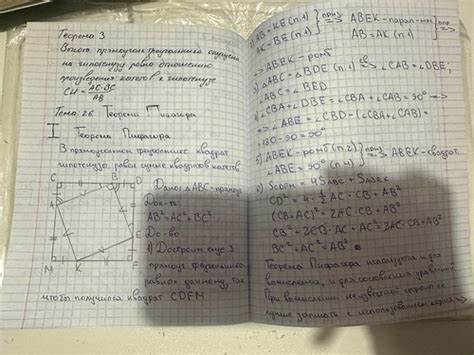 Теорема 3
Высота прямоугол. треугольника опущена
на гипотенузу равна отношению
произведения катетов к гипотенузе
CH = AC·BC / AB
Тема: 26 Теорема Пифагора
I Теорема Пифагора
В прямоугольном треугольнике квадрат
гипотенузы равен сумме квадратов катетов
C B D
A
E
M K F
Дано: △ABC - прямоуг
Док-ть:
AB²=AC²+BC²
До-во:
1) Достроим еще 3
прямоуг треугольника
равных данному, так
чтобы получился квадрат CDFM
2) AB = KE (п.1)
AK = BE (п.1)
ABEK - парал-мм
AB = AK (п.1)
=> ABEK - ромб
3) △ABC = △BDE (п.1) => ∠CAB = ∠DBE;
∠ABC = ∠BED
4) ∠CBA + ∠DBE = ∠CBA + ∠CAB = 90° =>
=> ∠ABE = ∠CBD - (∠CBA + ∠CAB) =
= 180 - 90 = 90°
5) ABEK - ромб (п.2)
∠ABE = 90° (п.4)
=> ABEK - квадрат
6) SCDFM = 4SABC + SABEK
CD² = 4 · 1/2 AC · CB + AB²
(CB + AC)² = 2AC · CB + AB²
CB² + 2CB · AC + AC² = 2AC · CB + AB²
BC² + AC² = AB²
Теорема Пифагора используется и для
вычисления, и для составления уравнений
При вычислении неизвестной стороны
лучше записать с использованием корня